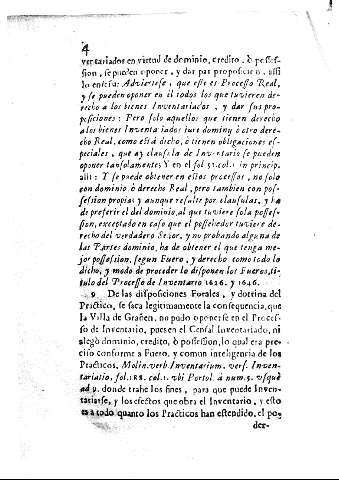 4
ventariados en virtud de dominio, credito, ò posses-
sion, se pueden oponer, y dar par proposicion, assi
lo enseña: Adviertese, que este es Processo Real,
y se pueden oponer en el todos los que tuvieren de-
recho a los bienes Inventariados, y dar sus pro-
posiciones: Pero solo aquellos que tienen derecho
a los bienes Inventariados iure dominy ò otro dere-
cho Real, como està dicho, ò tienen obligaciones es-
peciales, que ay clausula de Inventario se pueden
oponer tansolamente Y en el fol. 52. col. 1 in princip.
alli: Y se puede obtener en estos processos, no solo
con dominio, ò derecho Real, pero tambien con pos-
session propia; y aunque resulte por clausulas, y ha
de preferir el del dominio, al que tuviere sola posses-
sion, exceptado en caso que el posseedor tuviere de-
recho del verdadero Señor, y no probando alguna de
las Partes dominio, ha de obtener el que tenga me-
jor possession, segun Fuero, y derecho como todo lo
dicho, y modo de proceder lo disponen los Fueros, ti-
tulo del Processo de Inventario 1626. y 1646.
9 De las disposiciones Forales, y doctrina del
Práctico, se saca legitimamente la consequencia, que
la Villa de Grañen, no pudo oponerse en el Proces-
so de Inventario, puesen el Censal Inventariado, ni
alegò dominio, credito, ò possession, lo qual era pre-
ciso conforme a Fuero, y comun inteligencia de los
Practicos. Molin. verb. Inventarium. vers. Inven-
tariatio. fol. 188. col. 1. vbi Portol. à num. 5. vsque
ad 9. donde trahe los fines, para que puede Inven-
tariarse, y los efectos que obra el Inventario, y esto
es a todo quanto los Practicos han estendido, el po-
der-